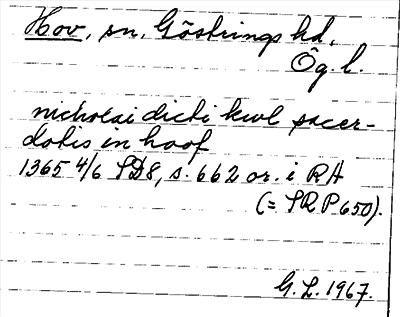 Hov, sn, Göstrings hd,
Ög. l.
nicholai dicti kwl sacer-
dotis in hoof
1365 4/6 SD8, s. 662 or. i RA
(= SRP 650).
G. L. 1967.